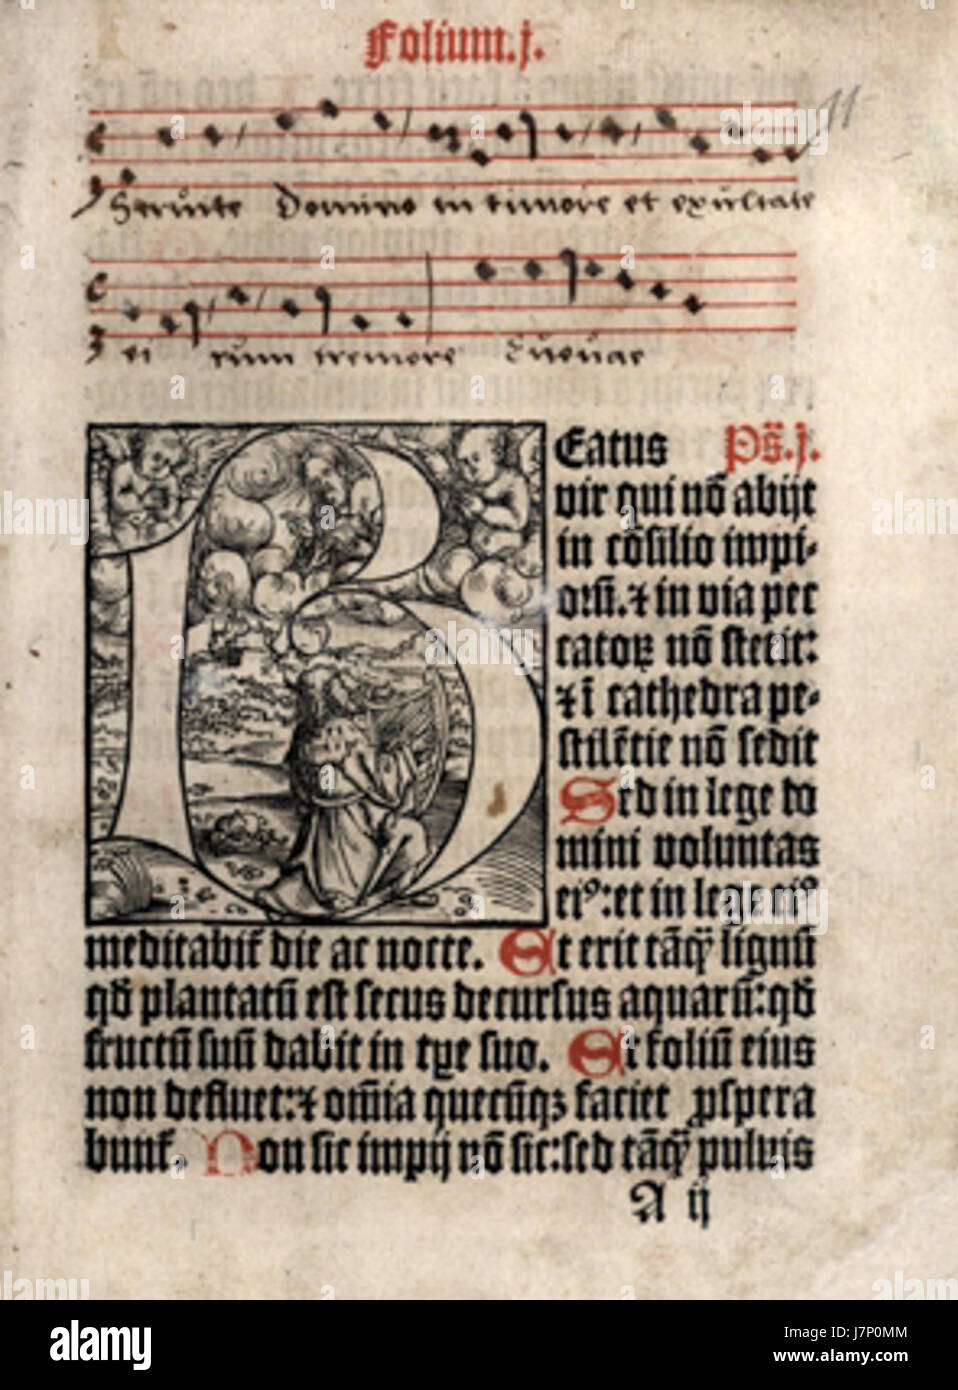 Folium.j.
11
Seruite Domino in timore et exultate
ei rum tremore Euouae
Eatus Ps̄.j.
vir qui nō abijt
in cōsilio impi⸗
orū. ⁊ in via pec
catoꝝ nō stetit:
⁊ ī cathedra pe⸗
stilētie nō sedit
Sed in lege do
mini voluntas
eiꝰ: et in lege eiꝰ
meditabit̃ die ac nocte. Et erit tāq̃ lignū
qď plantatū est secus decursus aquarū: qď
fructū suū dabit in tp̄e suo. Et foliū eius
non defluet: ⁊ om̄ia quecūqꝫ faciet ꝓspera
bunt̃. Non sic impij nō sic: sed tāq̃ puluis
A ij
alamy
Image ID: J7P0MM
www.alamy.com